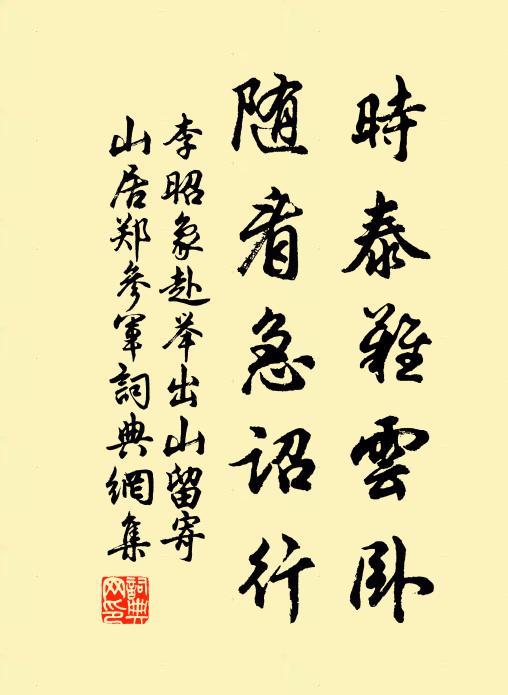 時泰難雲卧
随看急詔行
李昭象赴举出山留寄
山居郑參軍詞典網集
詞典网印